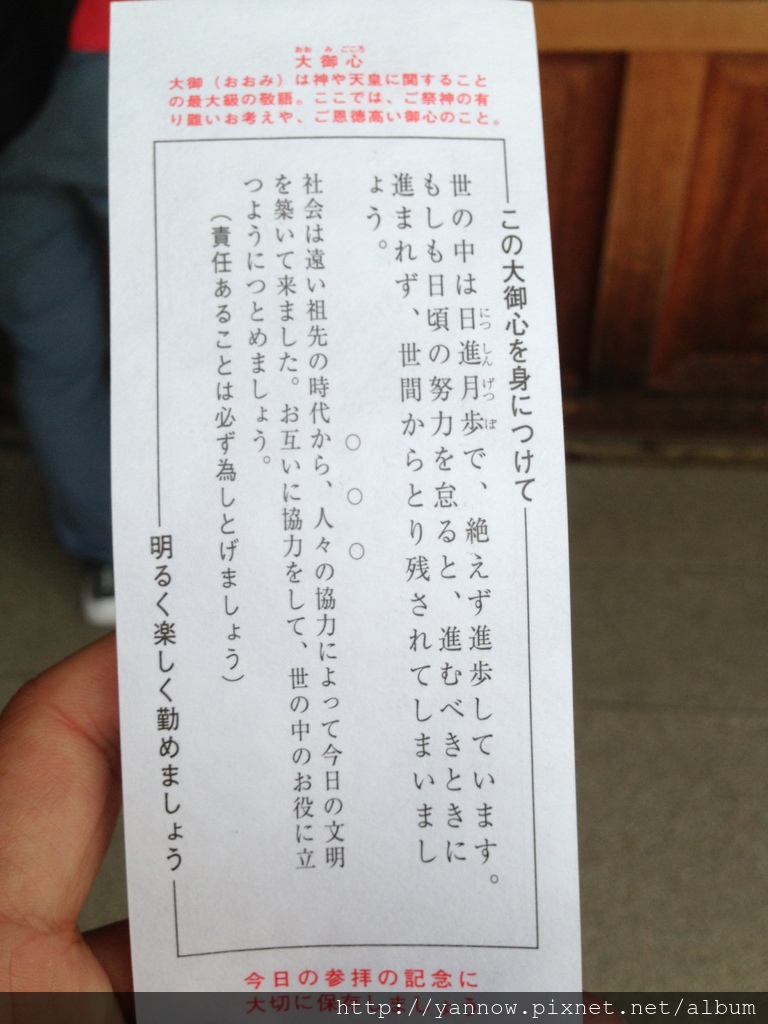 おおみごころ
大御心
大御（おおみ）は神や天皇に関すること
の最大級の敬語。ここでは、ご祭神の有
り難いお考えや、ご恩徳高い御心のこと。
この大御心を身につけて
世の中は日進月歩で、絶えず進歩しています。
にっしんげっぽ
もしも日頃の努力を怠ると、進むべきときに
進まれず、世間からとり残されてしまいまし
ょう。
○○○
社会は遠い祖先の時代から、人々の協力によって今日の文明
を築いて来ました。お互いに協力をして、世の中のお役に立
つようにつとめましょう。
（責任あることは必ず為しとげましょう）
明るく楽しく勤めましょう
今日の参拝の記念に
大切に保存しましょう
http://yannow.pixnet.net/album